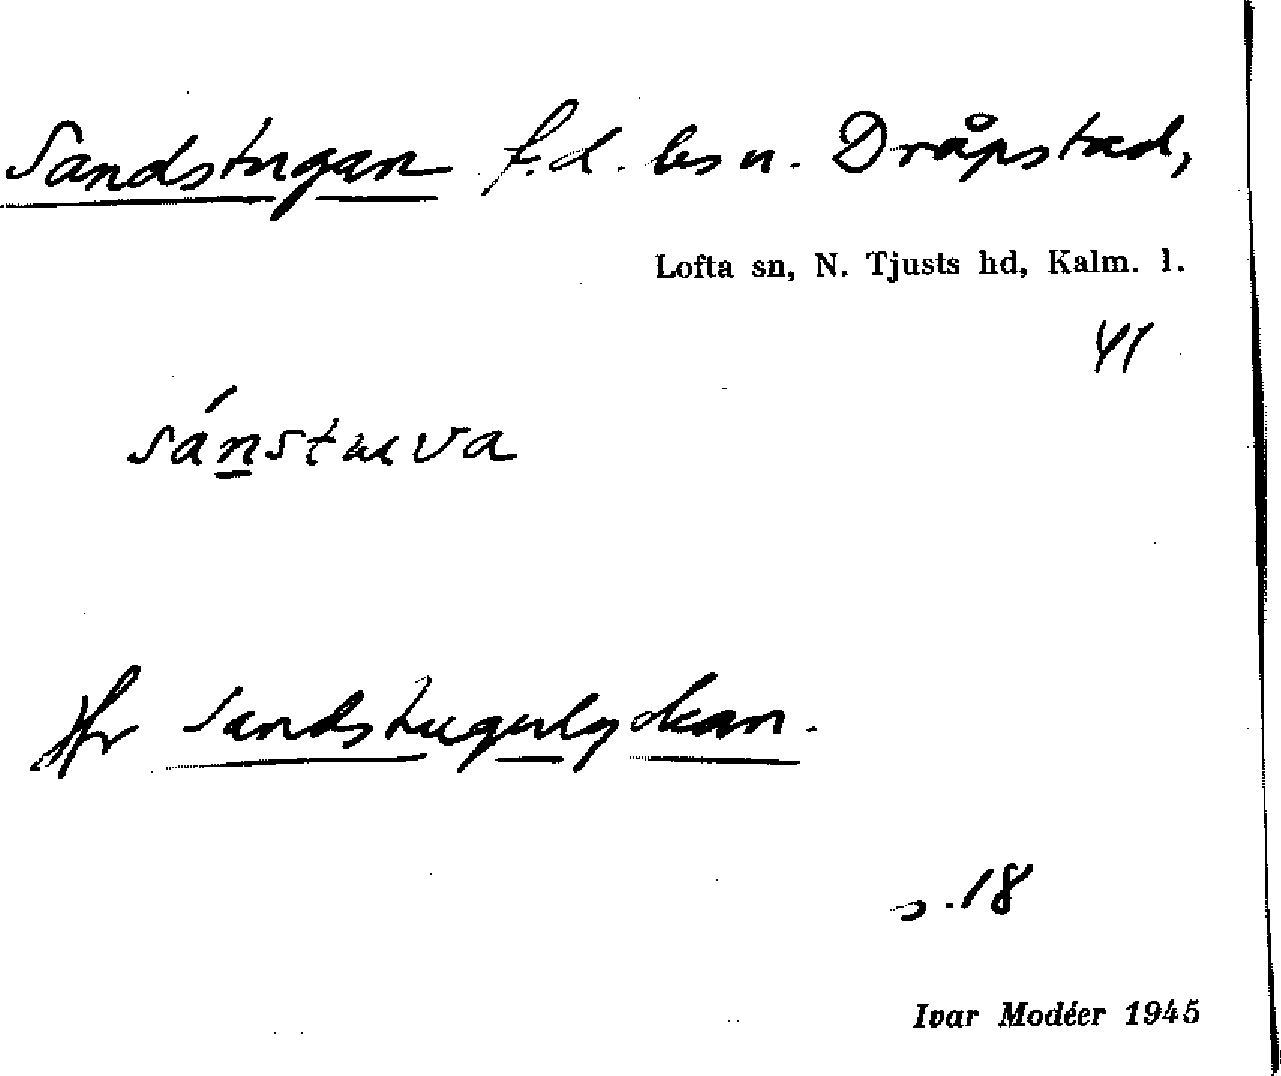 Sandstugan f.d. bs u. Dråpstad,
Lofta sn, N. Tjusts hd, Kalm. l.
41
sánstuva
Jfr Sandstugulyckan.
s. 18
Ivar Modéer 1945